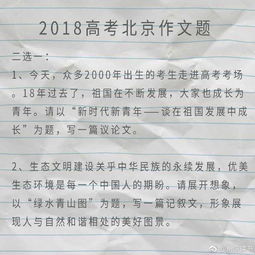 2018高考北京作文题
二选一：
1、今天，众多2000年出生的考生走进高考考场
。18年过去了，祖国在不断发展，大家也成长为
青年。请以“新时代新青年——谈在祖国发展中成
长”为题，写一篇议论文。
2、生态文明建设关乎中华民族的永续发展，优美
生态环境是每一个中国人的期盼。请展开想象，
以“绿水青山图”为题，写一篇记叙文，形象展
现人与自然和谐相处的美好图景。